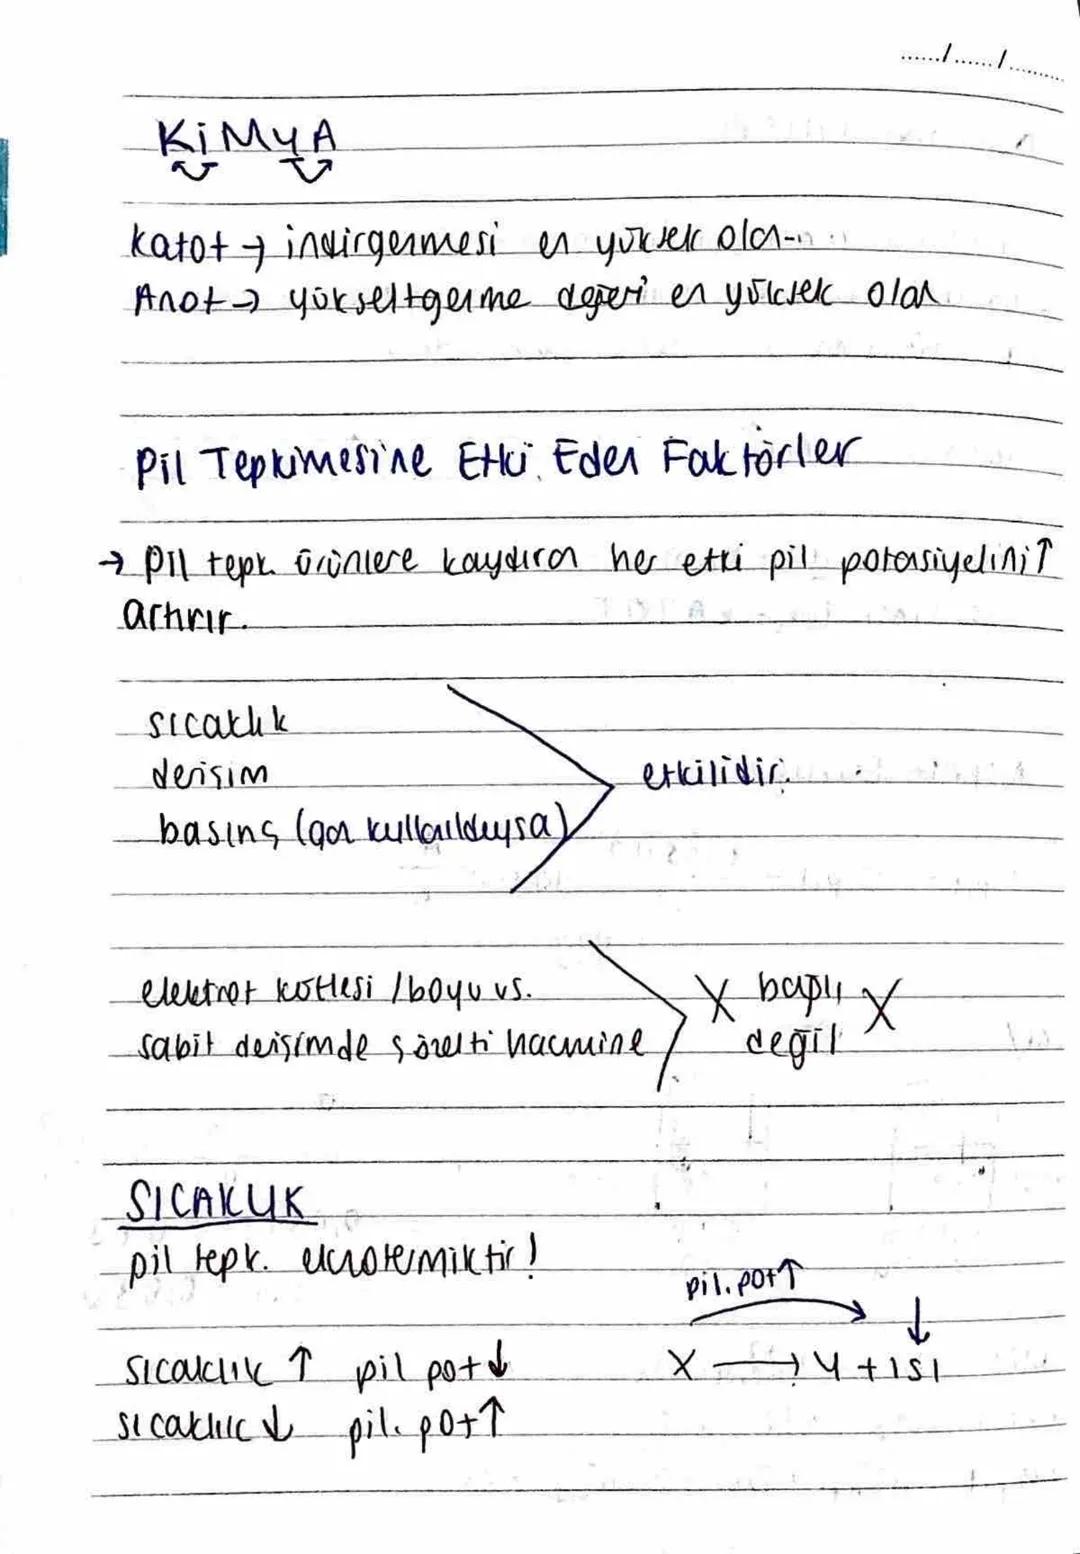 ....../....../.........
KİMYA
Katot → indirgenmesi en yüksek olan
Anot → yükseltgenme değeri en yüksek olan
Pil Tepkimesine Etki Eden Faktörler
→ Pil tepk. ürünlere kaydıran her etki pil potansiyelini ↑
artırır.
sıcaklık
derişim
basınç (gaz kullanıldıysa)
etkilidir.
elektrot kütlesi / boyu vs.
sabit derişimde çözelti hacmine
X bağlı X
değil
SICAKLIK
pil tepk. ekzotermiktir!
pil. pot ↑
sıcaklık ↑ pil pot ↓
X → Y + ISI ↓
sıcaklık ↓ pil. pot ↑